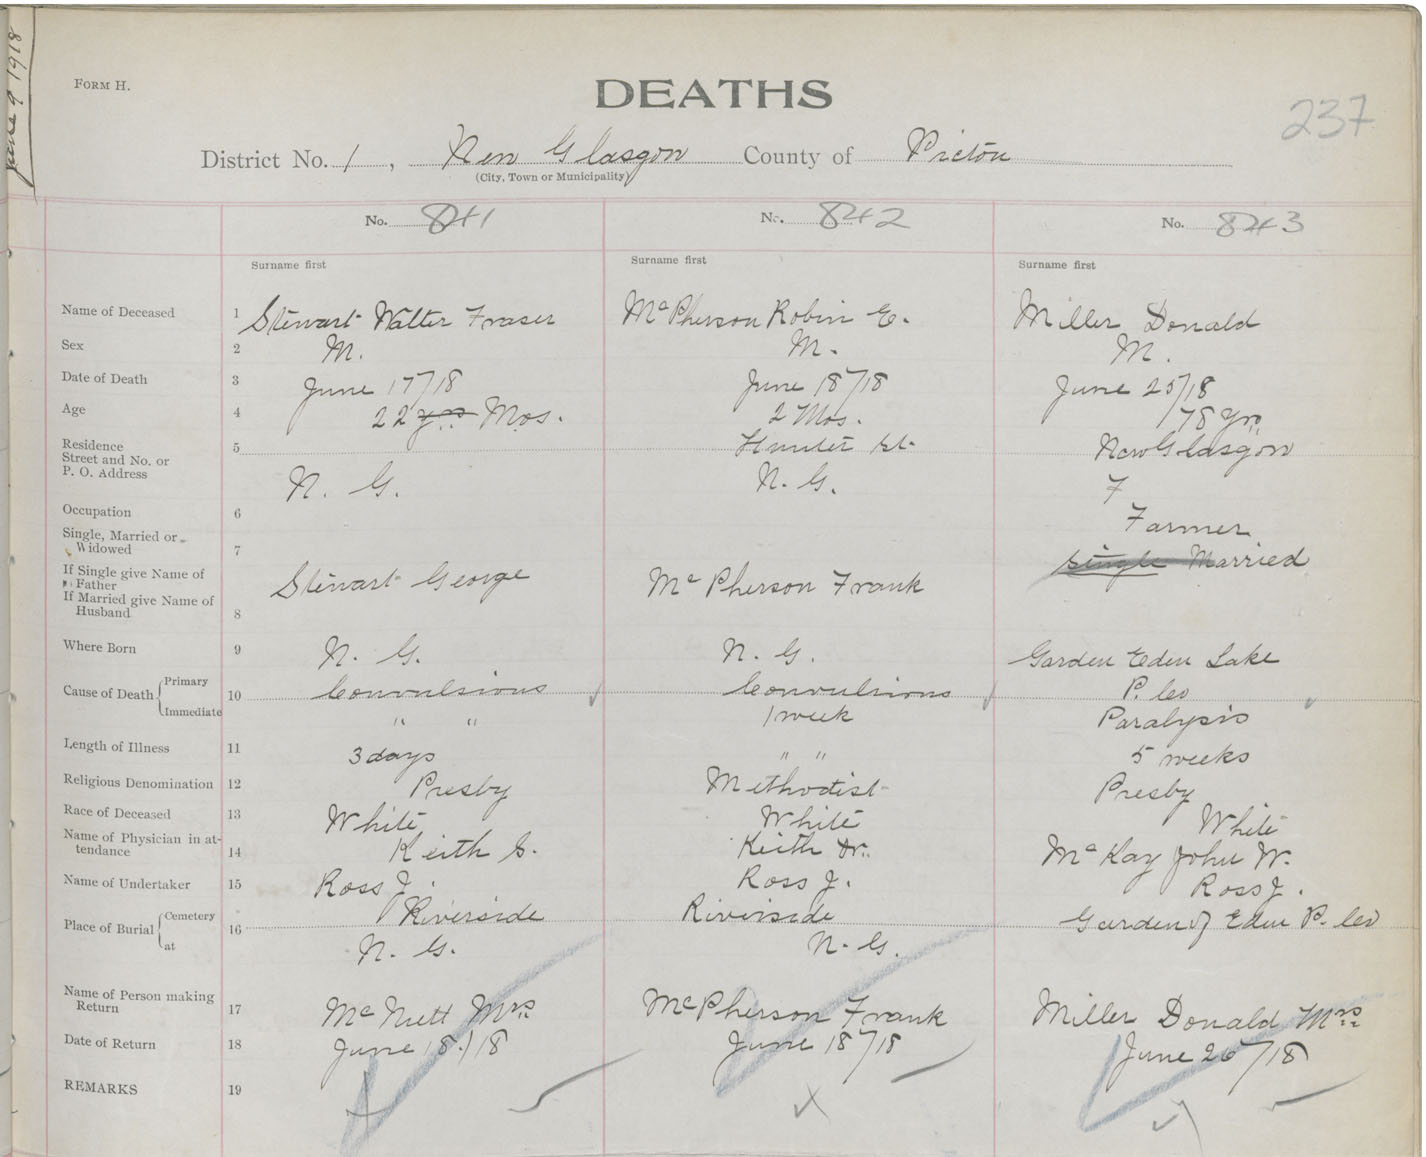 June 9 1918
FORM H.
DEATHS
237
District No. 1, New Glasgow County of Pictou
(City, Town or Municipality)
No. 841 No. 842 No. 843
Surname first Surname first Surname first
Name of Deceased 1 Stewart Walter Fraser McPherson Robin E. Miller Donald
Sex 2 M. M. M.
Date of Death 3 June 17/18 June 18/18 June 25/18
Age 4 22 yrs Mos. 2 Mos. 78 yrs
Residence Street and No. or P. O. Address 5 Hunter St. New Glasgow
N. G. N. G. F
Occupation 6 Farmer
Single, Married or Widowed 7 single Married
If Single give Name of Father Stewart George McPherson Frank
If Married give Name of Husband 8
Where Born 9 N. G. N. G. Garden Eden Lake
Cause of Death Primary 10 Convulsions Convulsions P. Co
Immediate " " 1 week Paralysis
Length of Illness 11 3 days " " 5 weeks
Religious Denomination 12 Presby Methodist Presby
Race of Deceased 13 White White White
Name of Physician in attendance 14 Keith S. Keith Dr. McKay John W.
Name of Undertaker 15 Ross J. Ross J. Ross J.
Place of Burial Cemetery 16 Riverside Riverside Garden of Eden P. Co
at N. G. N. G.
Name of Person making Return 17 McNutt Mrs McPherson Frank Miller Donald Mrs
Date of Return 18 June 18/18 June 18/18 June 26/18
REMARKS 19